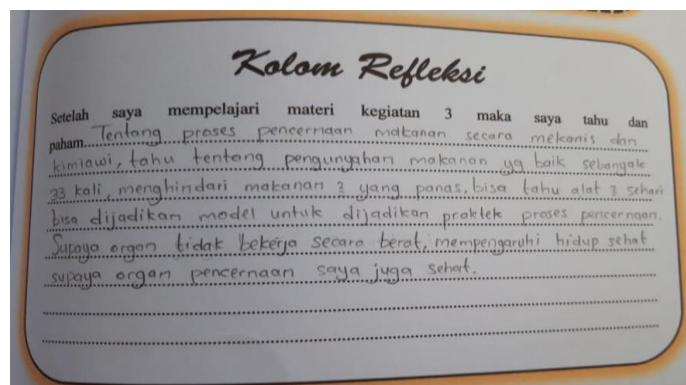 Kolom Refleksi
Setelah saya mempelajari materi kegiatan 3 maka saya tahu dan
paham. Tentang proses pencernaan makanan secara mekanis dan
kimiawi, tahu tentang pengunyahan makanan yg baik sebanyak
33 kali, menghindari makanan 2 yang panas, bisa tahu alat 3 sehari
bisa dijadikan model untuk dijadikan praktek proses pencernaan.
Supaya organ tidak bekerja secara berat, mempengaruhi hidup sehat
supaya organ pencernaan saya juga sehat.